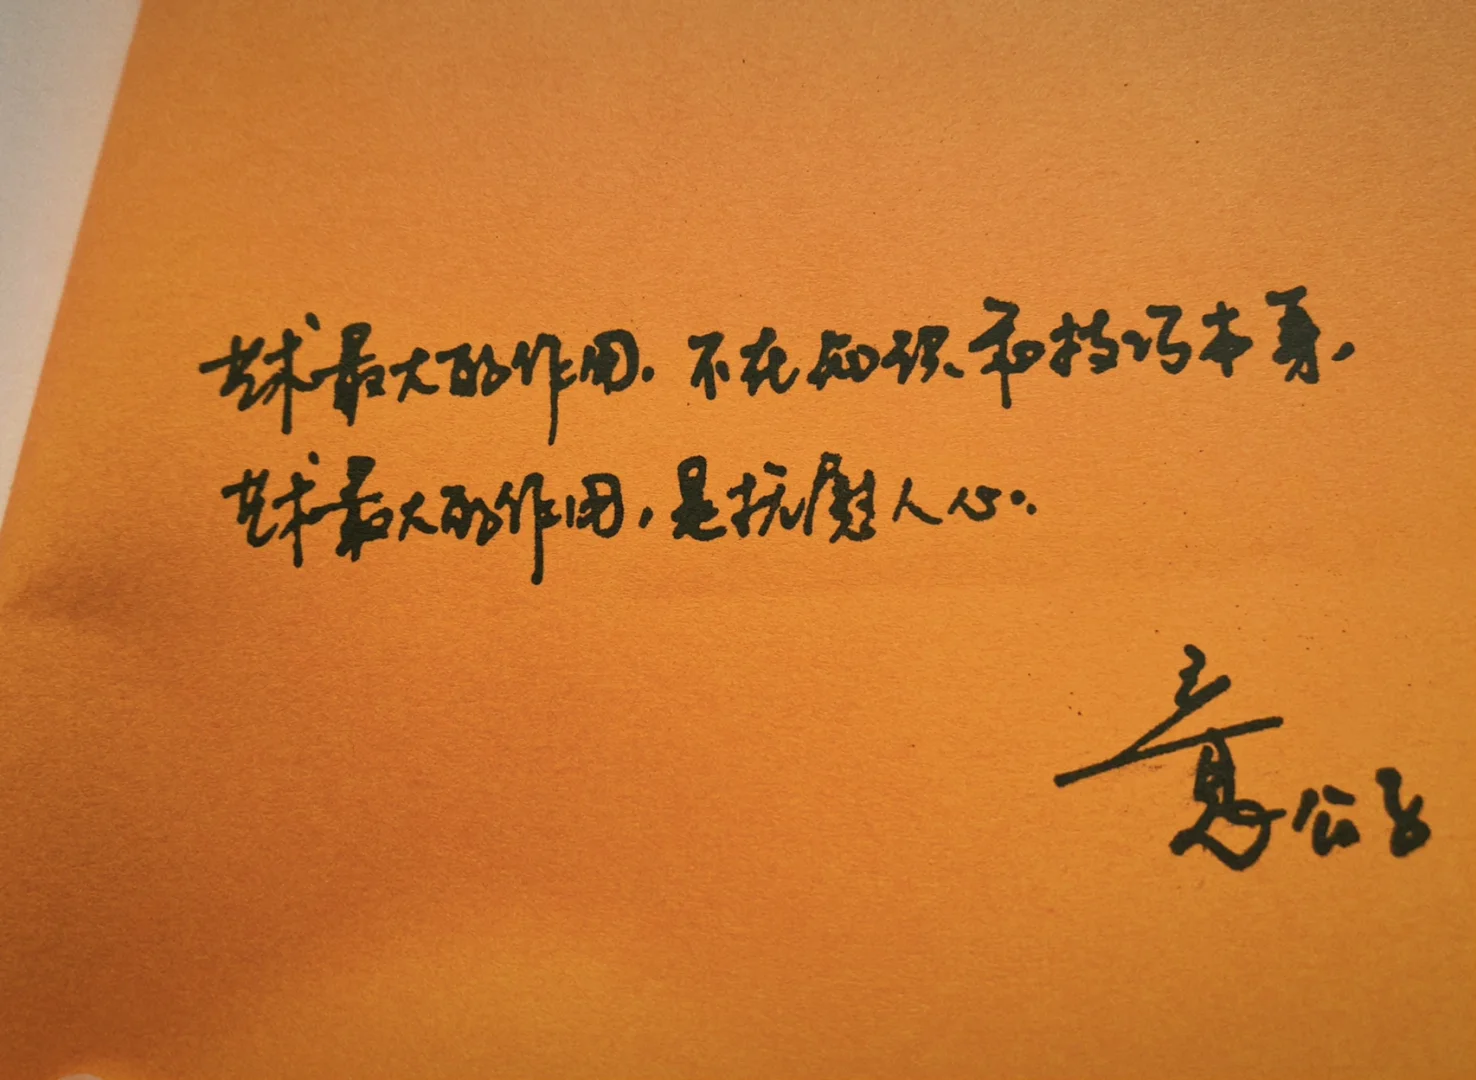 艺术最大的作用,不在知识和技巧本身,
艺术最大的作用,是抚慰人心。
意公子